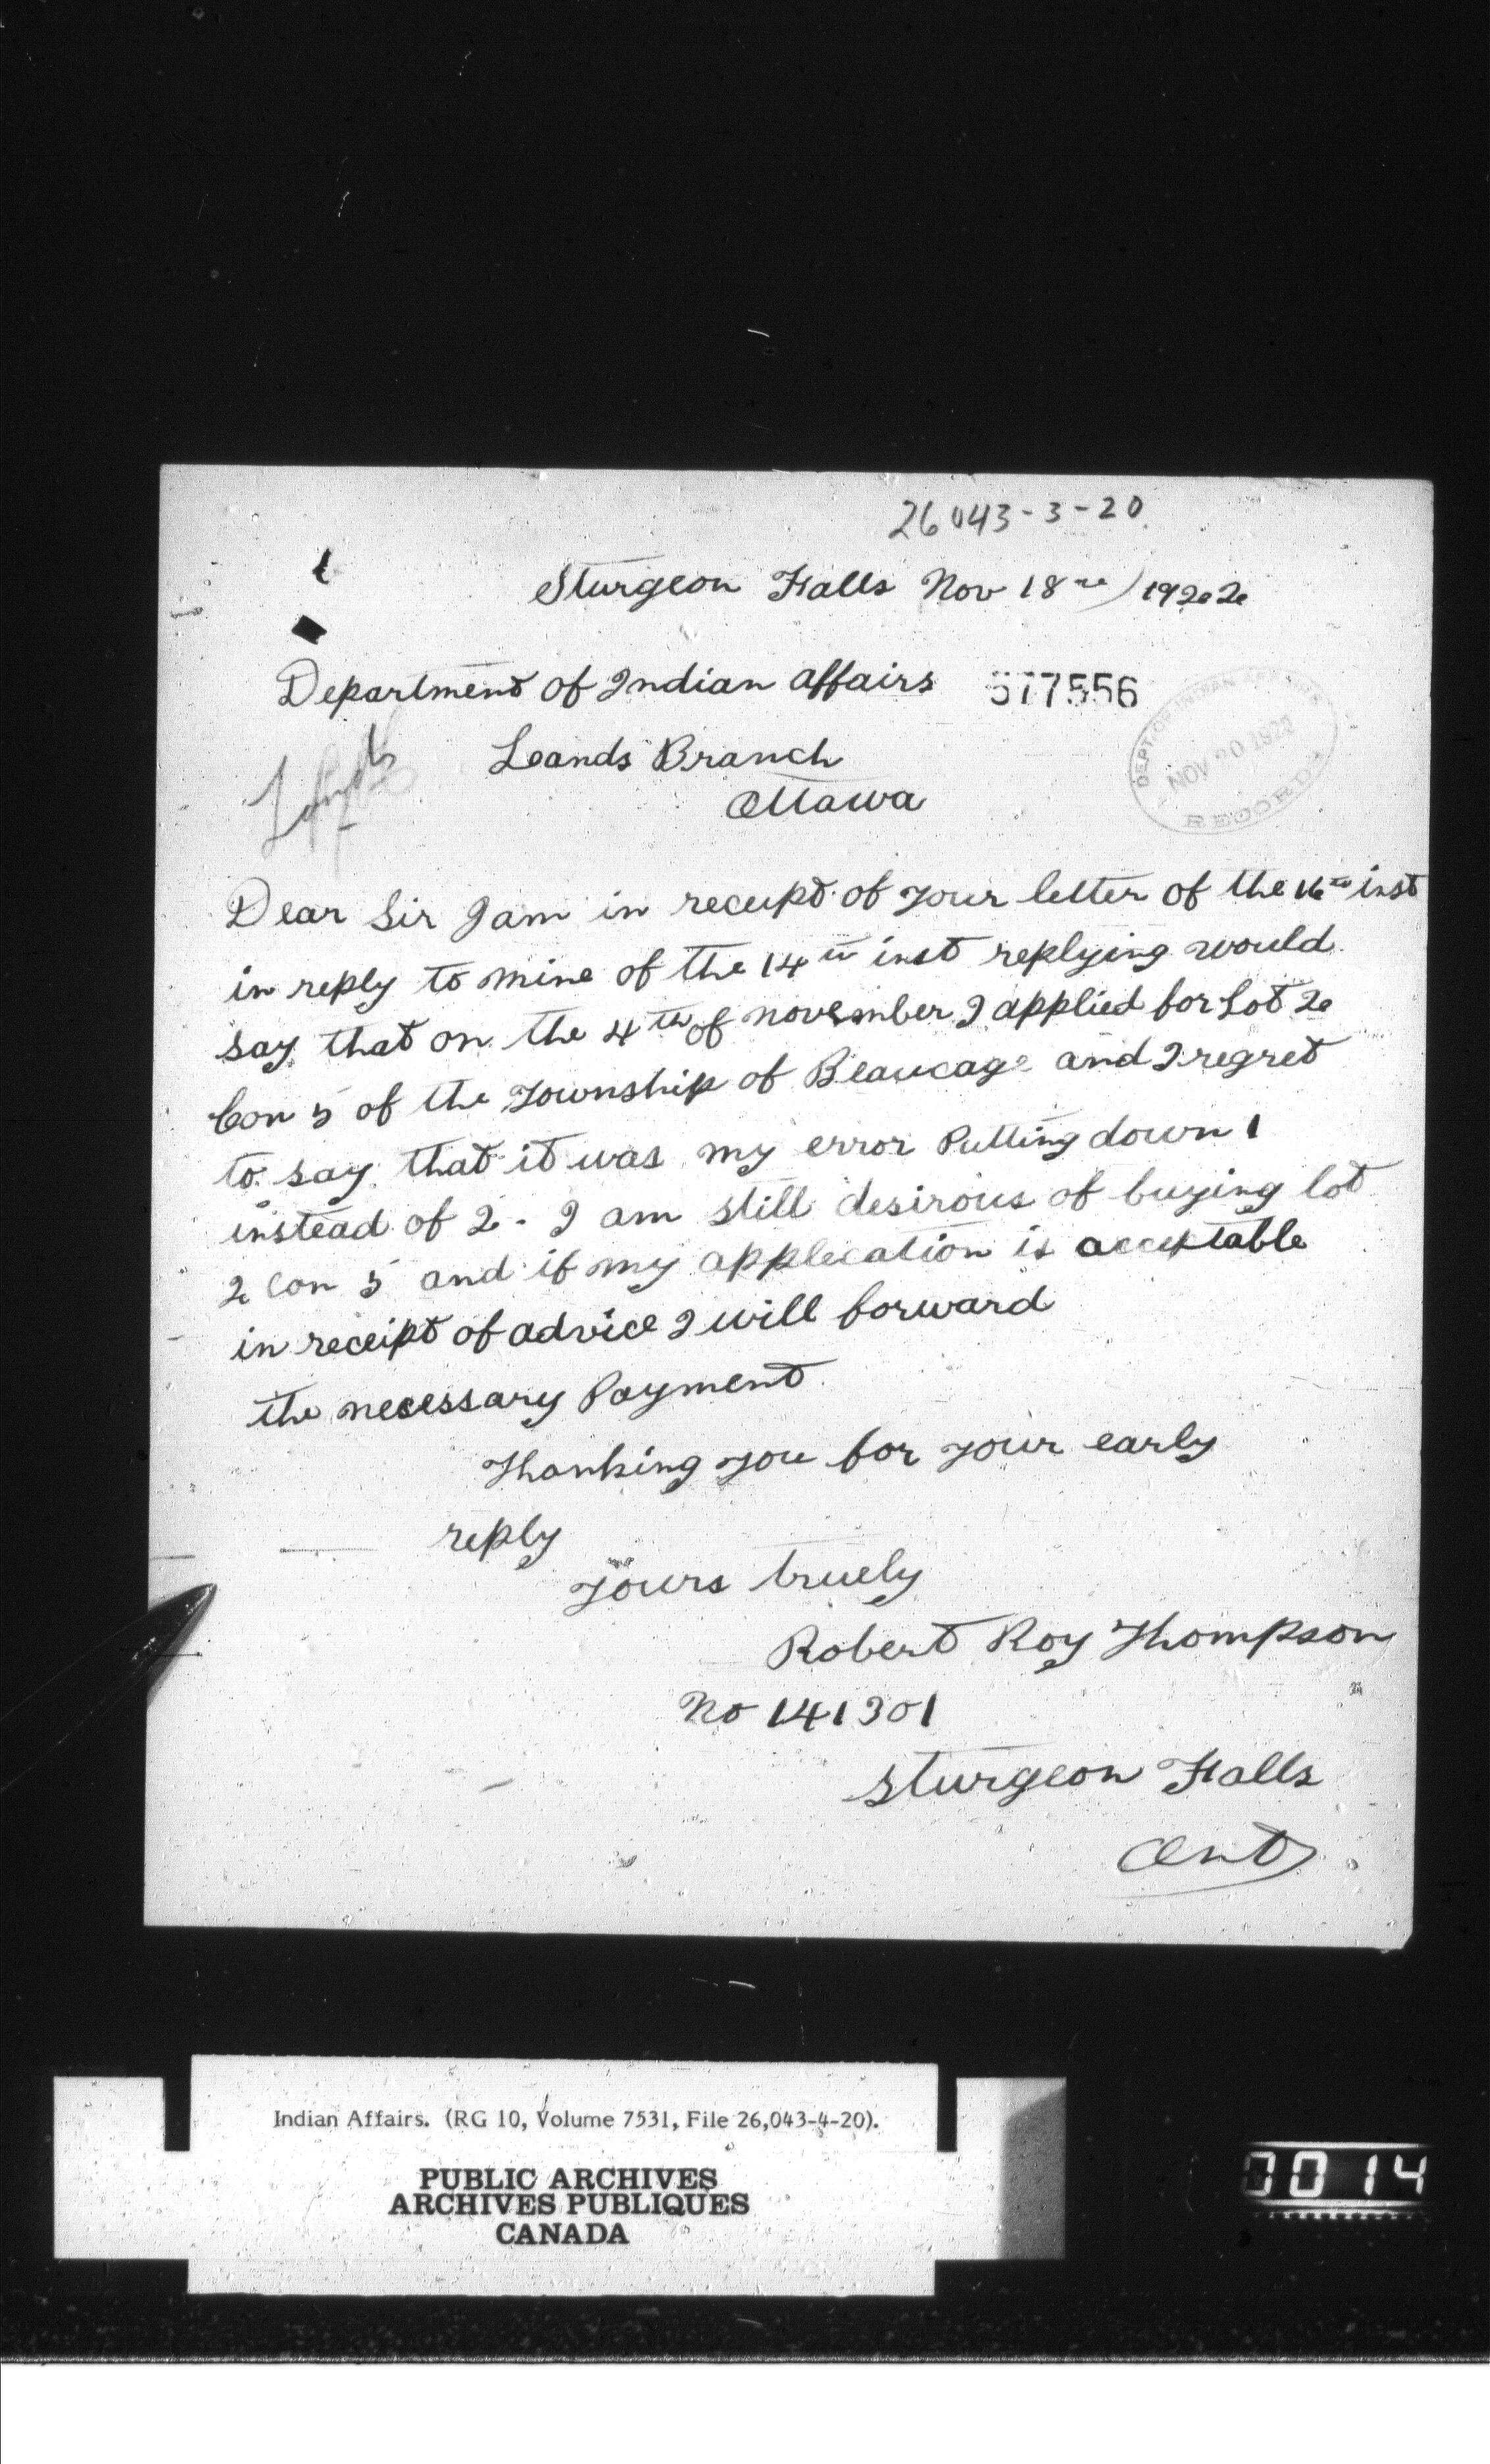 26043-3-20
Sturgeon Falls Nov 18th / 1922
Department of Indian affairs 577556
Lands Branch
Ottawa
Lands
DEPT. OF INDIAN AFFAIRS
NOV 20 1922
RECORDS
Dear Sir I am in receipt of your letter of the 16th inst
in reply to mine of the 14th inst replying would
say that on the 4th of november I applied for Lot 2
Con 5 of the Township of Beaucage and I regret
to say that it was my error Putting down 1
instead of 2 - I am still desirous of buying lot
2 Con 5 and if my applecation is acceptable
in receipt of advice I will forward
the necessary Payment.
Thanking you for your early
reply
Yours truely
Robert Roy Thompson
No 141301
Sturgeon Falls
Ont
Indian Affairs. (RG 10, Volume 7531, File 26,043-4-20).
PUBLIC ARCHIVES
ARCHIVES PUBLIQUES
CANADA
0014